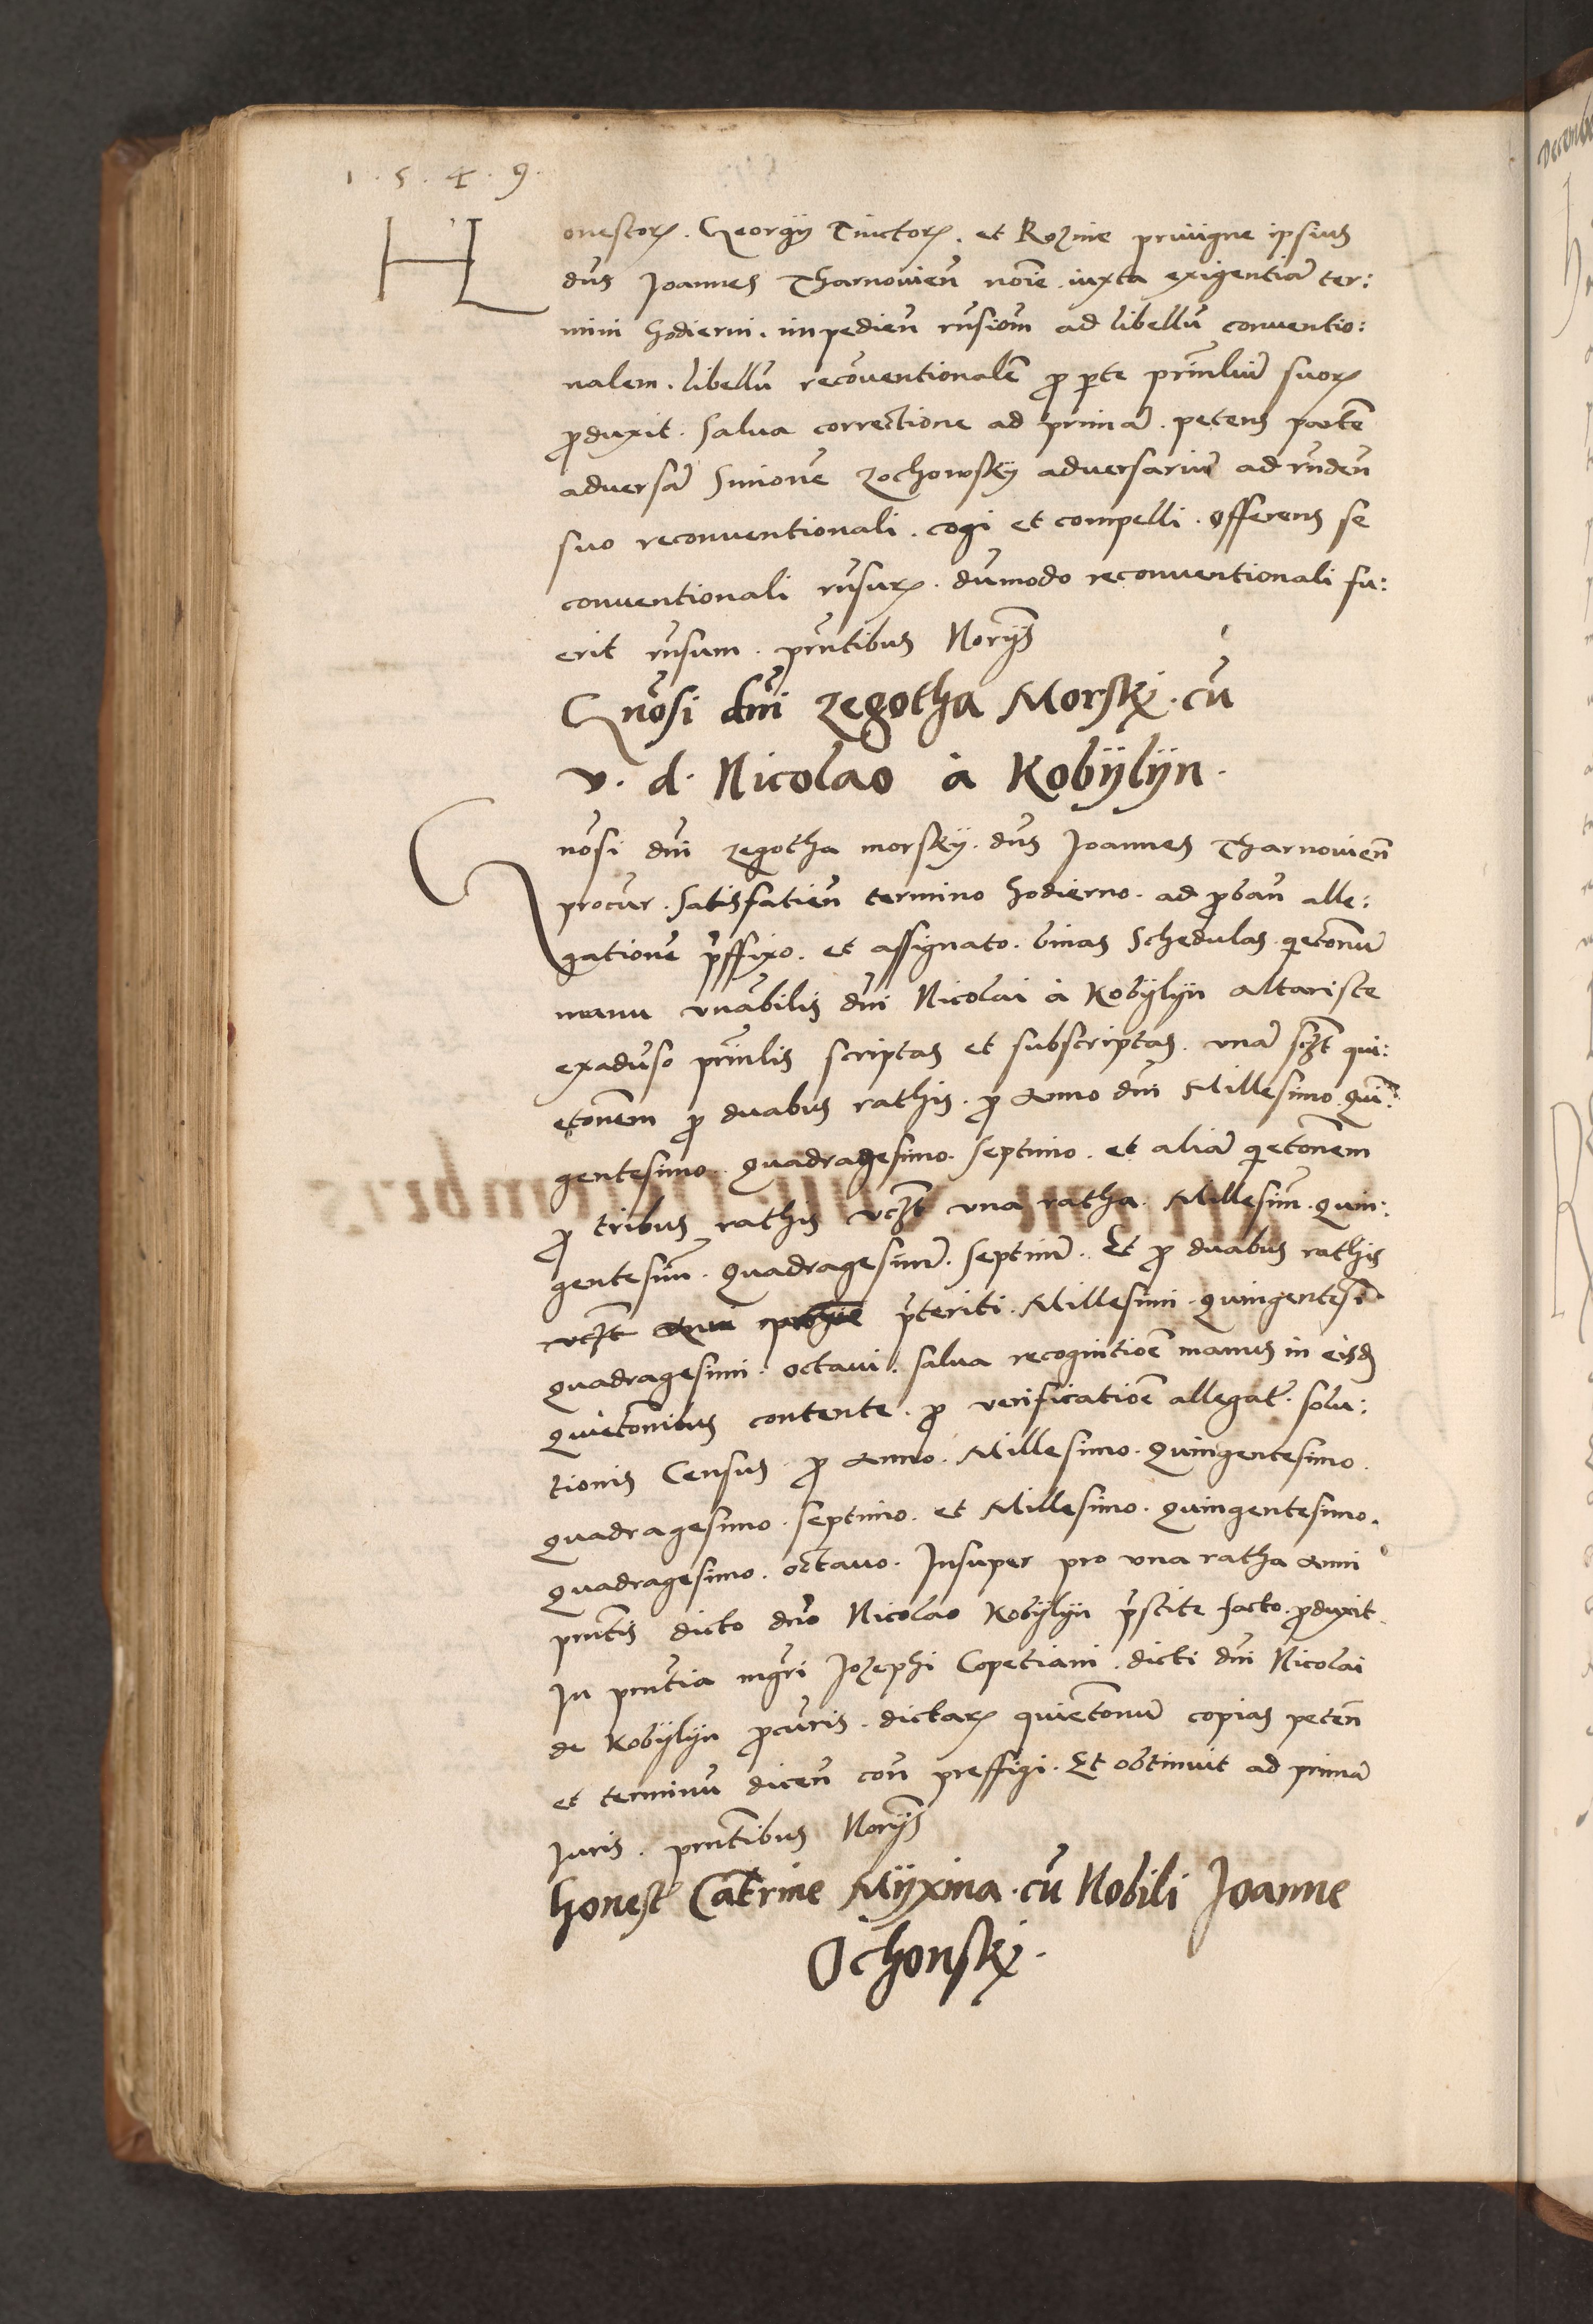 1 · 5 · 4 · 9 ·
Honestorꝝ . Georgij Tinctorꝝ . et Rozinie priuigne ipsius
dns Joannes Tharnouien̄ noīe iuxta exigentiā ter:
mini hodierni . impedien̄ rn̄siom̄ ad libellū conuentio:
nalem . libellū recōuentionalē ꝓ ꝑte prīnliuꝫ suorꝝ
ꝓduxit . Salua correctione ad primā . petens partē
aduersā Simonē Zochowsky aduersariuꝫ ad rn̄den̄
suo reconuentionali . cogi et compelli . offerens se
conuentionali rn̄surꝝ . dūmodo reconuentionali fu:
erit rn̄sum . prn̄tibus Norijs
Gnōsi dnī Zegotha Morsky . cū
v . d . Nicolao à Kobijlijn .
Gnōsi dnī Zegotha morskij . dns Joannes Tharnouien̄
procur . Satisfatien̄ termino hodierno . ad ꝓban̄ alle:
gationē p̄ffixo . et assignato . binas Schedulas qietonuꝫ
manu vnābilis dnī Nicolai à Kobijlijn altariste
exaduso prīnlis scriptas et subscriptas . vnā sczt qui:
etonem ꝓ duabus rathis . ꝓ Anno dnī Millesimo Quī:
gentesimo . Quadragesimo . septimo . et aliā qietonem
ꝓ tribus rathis vczt vna ratha . Millesim̄ . Quin:
gentesim̄ . Quadragesimꝫ . septimꝫ . Et ꝓ duabus rathis
vczt p̄teriti . Millesimi . Quingentesī
Quadragesimi . octaui . salua recognitioē manus in eisdꝫ
Quietonibus contente . ꝓ verificatioē allegat̄ . solu:
tionis Census ꝓ Anno . Millesimo . Quingentesimo .
Quadragesimo . septimo . et Millesimo . Quingentesimo .
Quadragesimo . octauo . Insuper pro vna ratha Anni
prn̄tis dicto dnō Nicolao Kobijlijn p̄scite facto . ꝓduxit .
In prn̄tia mgr̄i Jozephi Copetiani . dicti dnī Nicolai
de Kobijlijn ꝓcuris . dictarꝝ quietonuꝫ copias peten̄
et terminū dicen̄ con̄ preffigi . Et obtinuit ad primā
Juris . prn̄tibus Norijs
Honest̄ Catrine Mijxina . cū Nobili Joanne
Ochonsky .